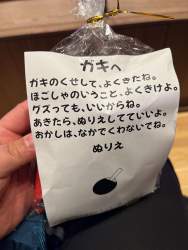 ガキへ
ガキのくせして、よくきたね。
ほごしゃのいうこと、よくきけよ。
グズっても、いいからね。
あきたら、ぬりえしてていいよ。
おかしは、なかでくわないでね。
ぬりえ